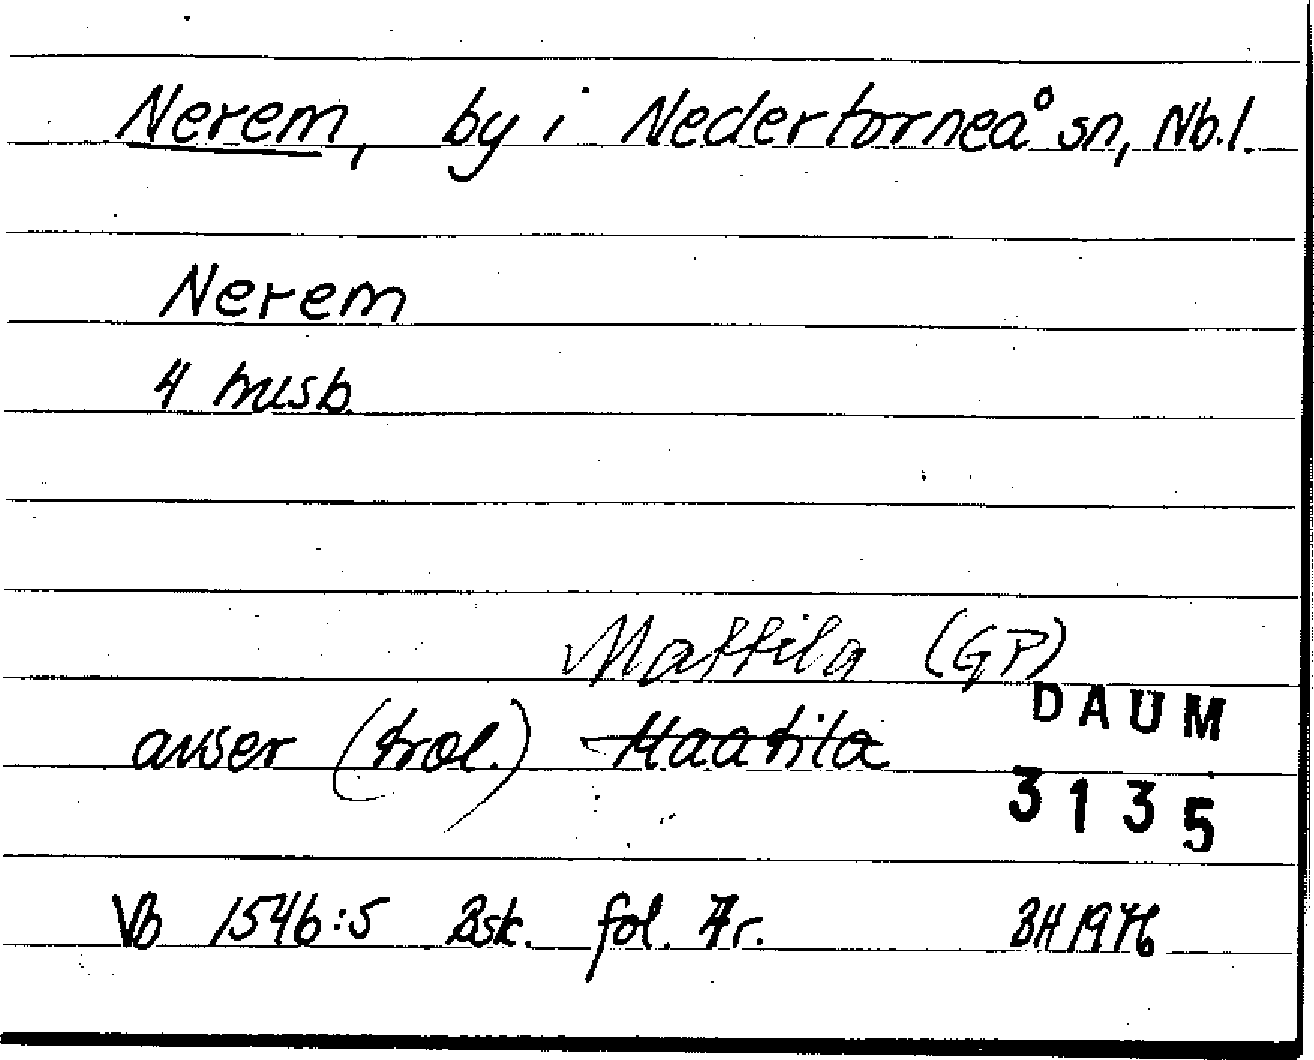 Nerem, by i Nedertorneå sn, Nb.l.
Nerem
4 husb.
Mattila (GP)
avser (trol.) Maatila
DAUM
3135
Vb 1546:5 Bsk. fol. 7r. BH 1976